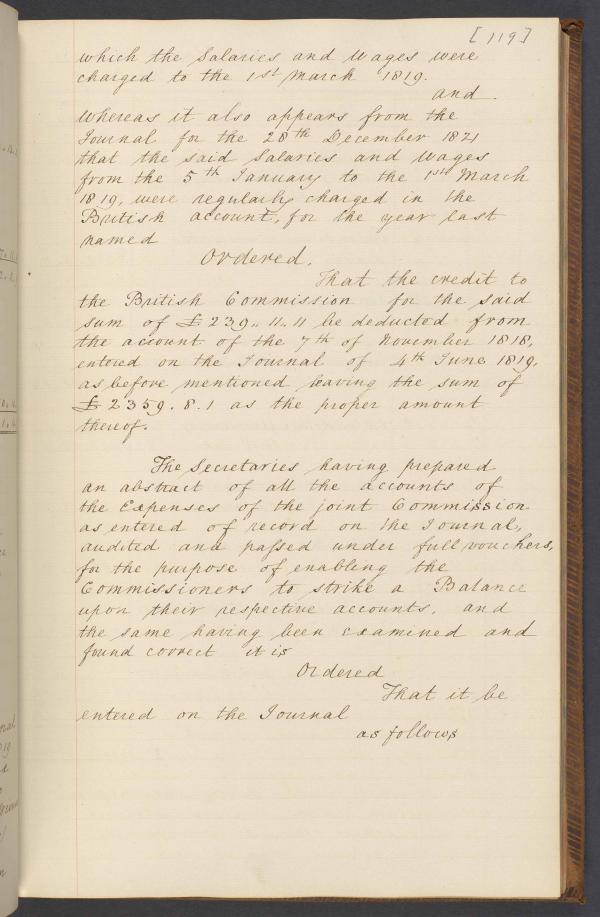 [119]
which the Salaries and Wages were
charged to the 1st March 1819.
and.
Whereas it also appears from the
Journal for the 28th December 1821
that the said Salaries and Wages
from the 5th January to the 1st March
1819, were regularly charged in the
British account, for the year last
named
Ordered.
That the credit to
the British Commission for the said
sum of £239.. 11.. 11 be deducted from
the account of the 7th of November 1818,
entered on the Journal of 4th June 1819,
as before mentioned leaving the sum of
£2359. 8. 1 as the proper amount
thereof.
The Secretaries having prepared
an abstract of all the accounts of
the Expenses of the joint Commission
as entered of record on the Journal,
audited and passed under full vouchers,
for the purpose of enabling the
Commissioners to strike a Balance
upon their respective accounts, and
the same having been examined and
found correct it is
Ordered
That it be
entered on the Journal
as follows